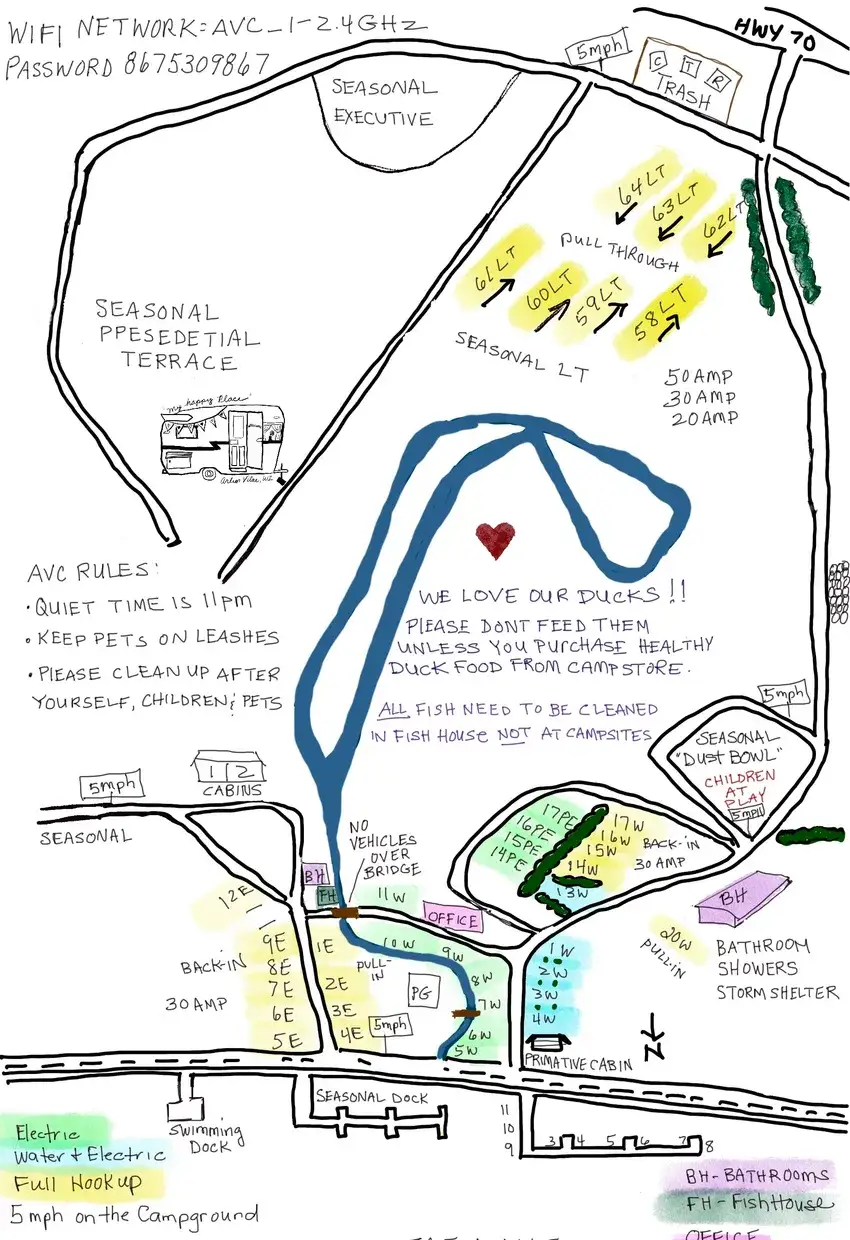 WIFI NETWORK: AVC_1-2.4GHz
PASSWORD 8675309867
HWY 70
5mph
C T R
TRASH
SEASONAL
EXECUTIVE
64LT
63LT
62LT
PULL THROUGH
61LT
60LT
59LT
58LT
SEASONAL LT
50 AMP
30 AMP
20 AMP
SEASONAL
PPESEDETIAL
TERRACE
"My happy Place"
AVC RULES:
• QUIET TIME IS 11pm
• KEEP PETS ON LEASHES
• PLEASE CLEAN UP AFTER
YOURSELF, CHILDREN & PETS
WE LOVE OUR DUCKS !!
PLEASE DONT FEED THEM
UNLESS YOU PURCHASE HEALTHY
DUCK FOOD FROM CAMPSTORE.
ALL FISH NEED TO BE CLEANED
IN FISH HOUSE NOT AT CAMPSITES
5mph
SEASONAL
"DUST BOWL"
CHILDREN
AT
PLAY
5mph
5mph
1 2
CABINS
SEASONAL
NO
VEHICLES
OVER
BRIDGE
BH
FH
11W
OFFICE
17PE
16PE
15PE
14PE
17W
16W
15W
14W
13W
BACK-IN
30 AMP
BH
BATHROOM
SHOWERS
STORM SHELTER
20W
PULL-IN
12E
9E
8E
7E
6E
5E
BACK-IN
30 AMP
1E
2E
3E
4E
PULL-
IN
5mph
PG
10W
9W
8W
7W
6W
5W
1W
2W
3W
4W
PRIMATIVE CABIN
N
SEASONAL DOCK
Swimming
DOCK
11
10
9
3 4 5 6 7 8
Electric
Water + Electric
Full Hookup
5 mph on the Campground
BH - BATHROOMS
FH - FishHouse
OFFICE